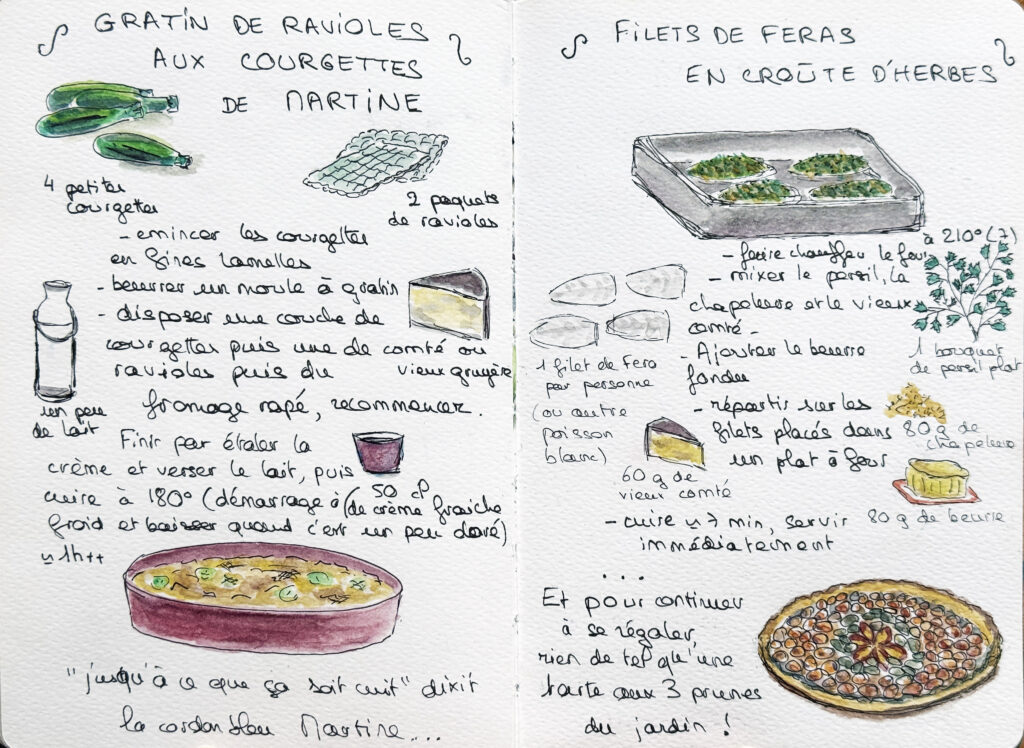 GRATIN DE RAVIOLES
AUX COURGETTES
DE MARTINE
4 petites
courgettes
2 paquets
de ravioles
- emincer les courgettes
en fines lamelles
- beurrer un moule à gratin
- disposer une couche de
courgettes puis une de comté ou
ravioles puis du vieux gruyère
fromage rapé, recommencer.
un peu
de lait
Finir par étaler la
crème et verser le lait, puis
cuire à 180° (démarrage à
50 cl
(de crème fraiche
froid et baisser quand c'est un peu doré)
≃ 1h++
"jusqu'à ce que ça soit cuit" dixit
la cordon bleu Martine...
FILETS DE FERAS
EN CROÛTE D'HERBES
- faire chauffer le four à 210° (7)
- mixer le persil, la
chapelure et le vieux
comté -
- Ajouter le beurre
fondu
- répartir sur les
filets placés dans
un plat à four
1 filet de Fera
par personne
(ou autre
poisson
blanc)
1 bouquet
de persil plat
80 g de
chapelure
60 g de
vieux comté
80 g de beurre
- cuire ≃ 7 min, servir
immédiatement
...
Et pour continuer
à se régaler,
rien de tel qu'une
tarte aux 3 prunes
du jardin !